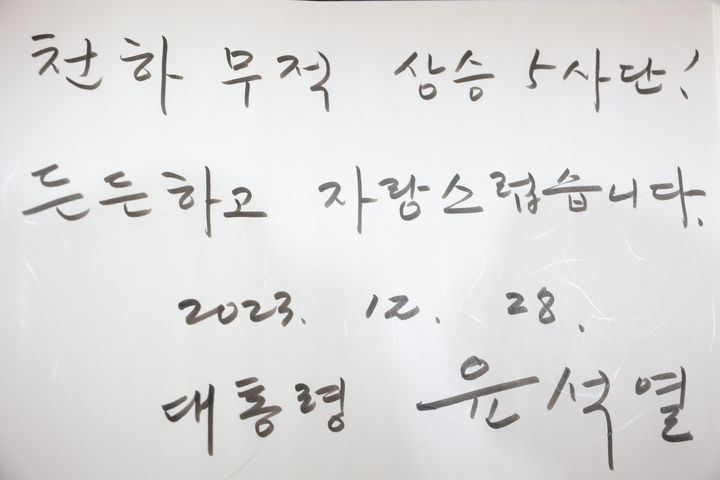 천하 무적 상승 5사단!
든든하고 자랑스럽습니다.
2023. 12. 28.
대통령 윤석열